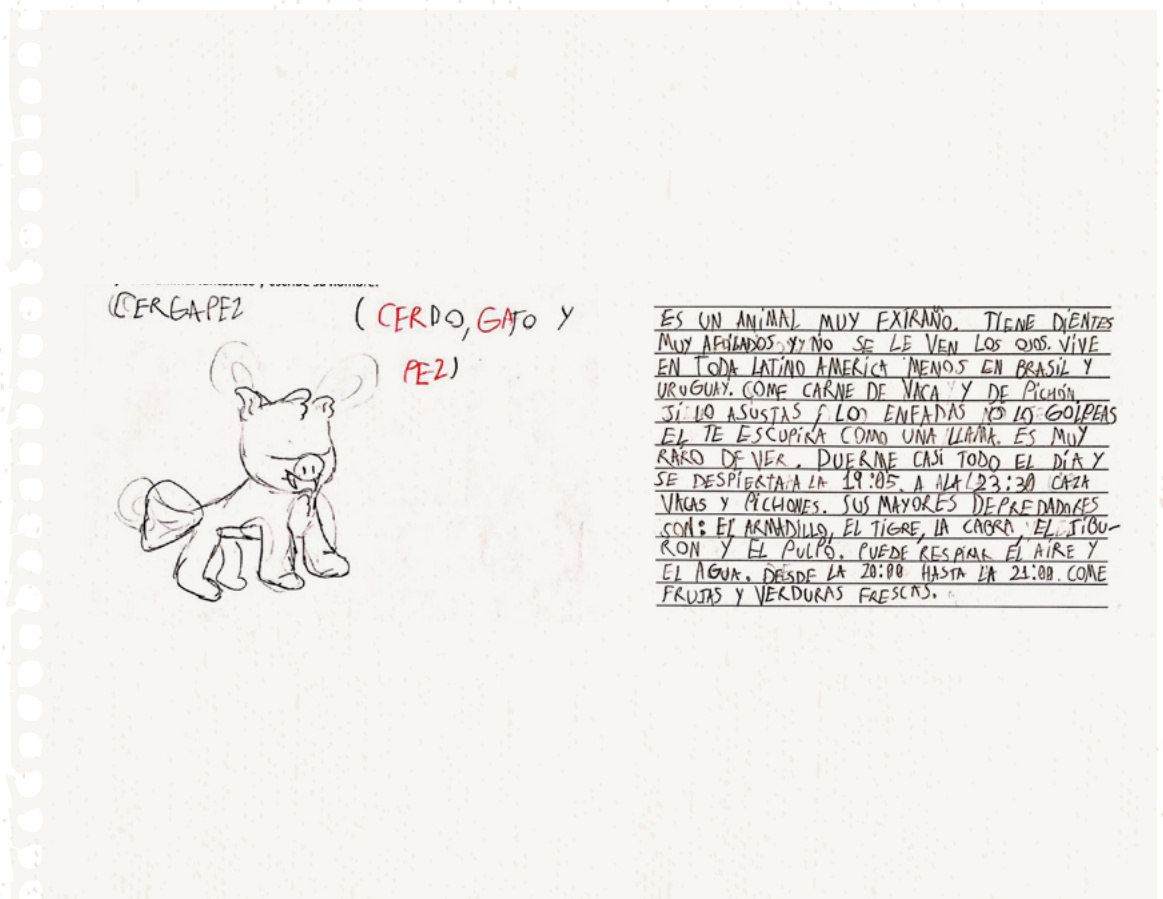 CERGAPEZ
(CERDO, GATO Y
PEZ)
ES UN ANIMAL MUY EXTRAÑO. TIENE DIENTES
MUY AFILADOS Y NO SE LE VEN LOS OJOS. VIVE
EN TODA LATINO AMERICA MENOS EN BRASIL Y
URUGUAY. COME CARNE DE VACA Y DE PICHÓN.
SI LO ASUSTAS, LO ENFADAS O LO GOLPEAS
EL TE ESCUPIRA COMO UNA LLAMA. ES MUY
RARO DE VER. DUERME CASI TODO EL DÍA Y
SE DESPIERTA A LA 19:05. A LA 23:30 CAZA
VACAS Y PICHONES. SUS MAYORES DEPREDADORES
SON: EL ARMADILLO, EL TIGRE, LA CABRA, EL TIBU-
RON Y EL PULPO. PUEDE RESPIRAR EL AIRE Y
EL AGUA. DESDE LA 20:00 HASTA LA 21:00 COME
FRUTAS Y VERDURAS FRESCAS.